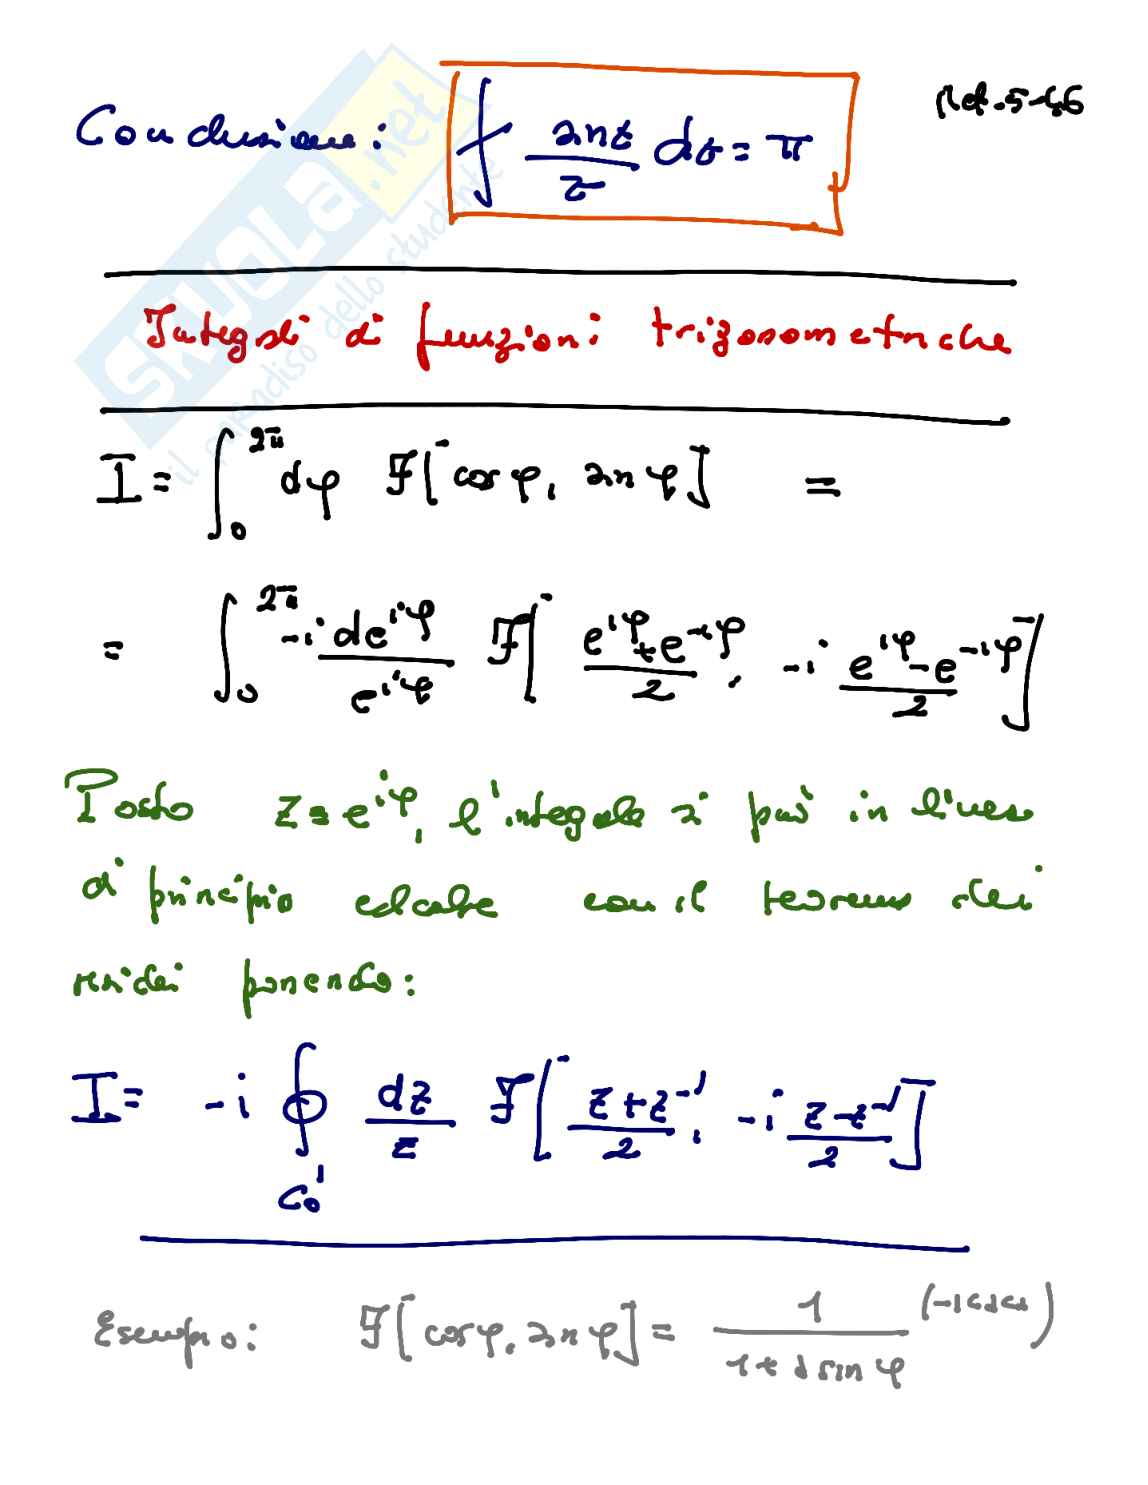 Met. 5-46
Conclusione: ⨍ sin z / z dz = π
Integrali di funzioni trigonometriche
I = ∫_0^{2π} dφ F[cos φ, sin φ] =
= ∫_0^{2π} -i de^{iφ} / e^{iφ} F[ (e^{iφ} + e^{-iφ}) / 2, -i (e^{iφ} - e^{-iφ}) / 2 ]
Posto z = e^{iφ}, l'integrale si può in linea
di principio calcolare con il teorema dei
residui ponendo:
I = -i ∮_{C_0^1} dz / z F[ (z + z^{-1}) / 2, -i (z - z^{-1}) / 2 ]
Esempio: F[cos φ, sin φ] = 1 / (1 + α sin φ) (-1<α<1)
SKUOLA.net
il paradiso dello studente